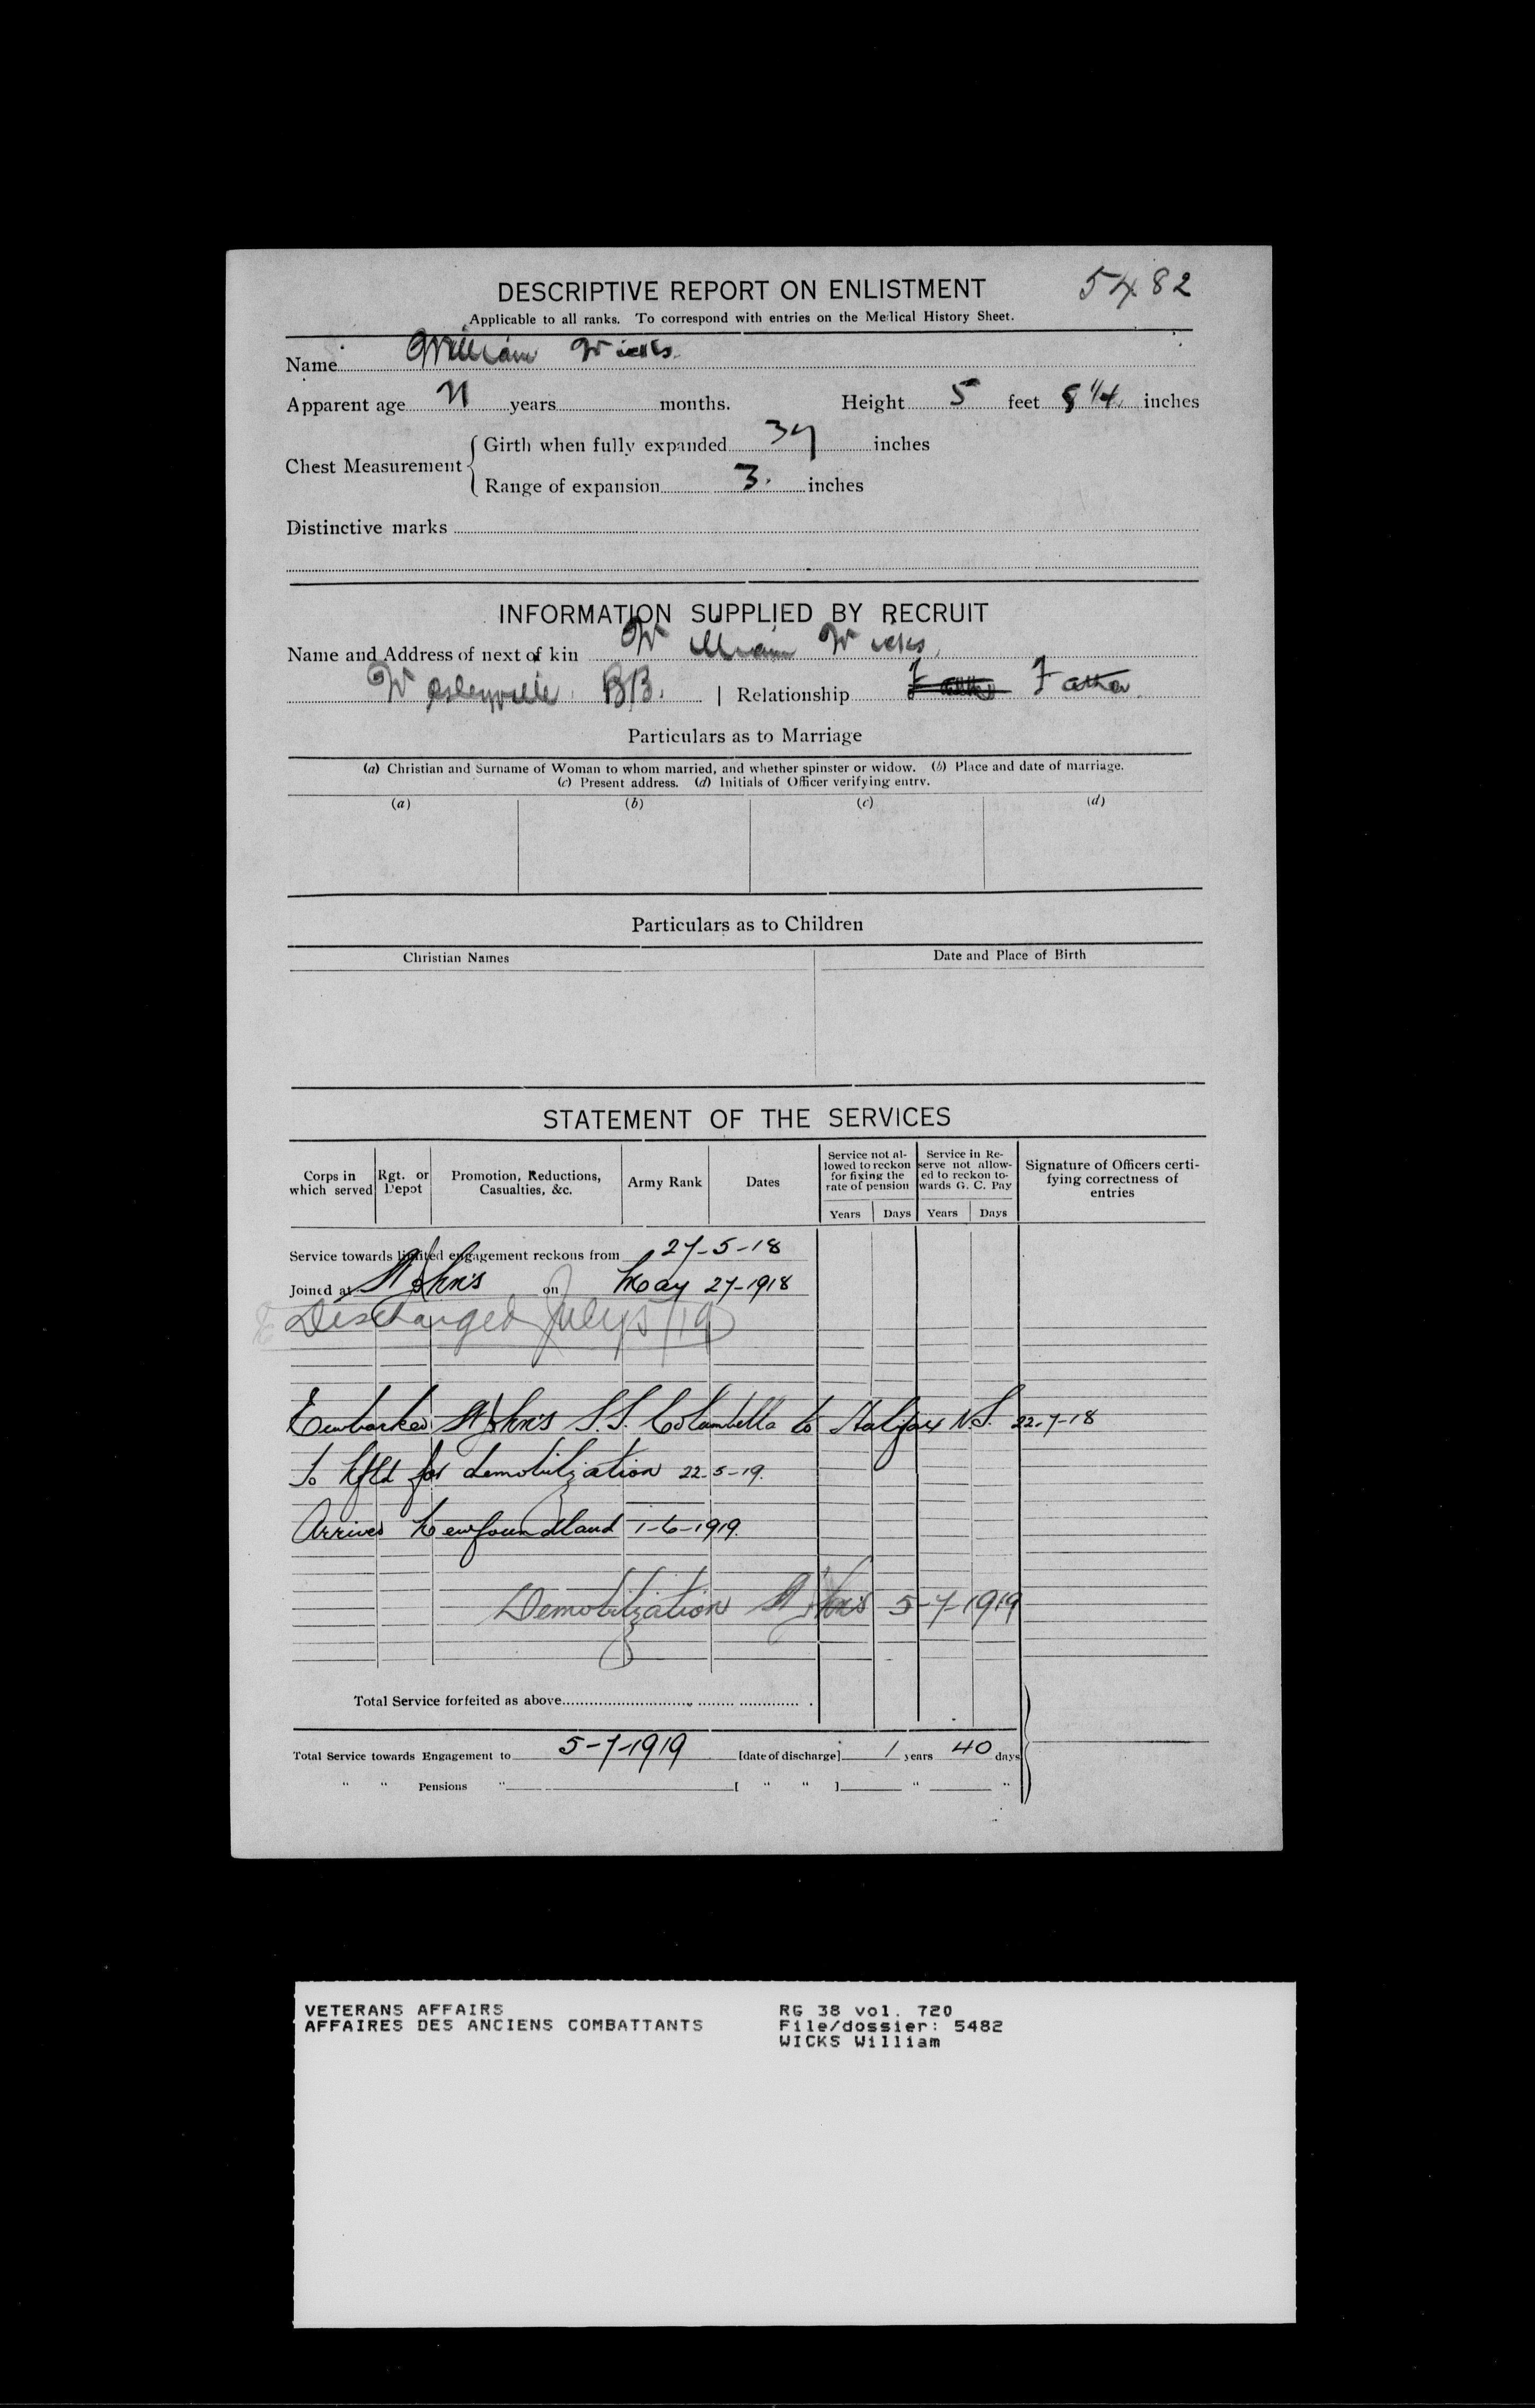 DESCRIPTIVE REPORT ON ENLISTMENT 5482
Applicable to all ranks. To correspond with entries on the Medical History Sheet.
Name William Wicks
Apparent age years months. Height 5 feet 8 1/4 inches
Chest Measurement
Girth when fully expanded 37 inches
Range of expansion 3. inches
Distinctive marks
INFORMATION SUPPLIED BY RECRUIT
Name and Address of next of kin William Wicks,
Wesleyville BB. | Relationship Father Father
Particulars as to Marriage
(a) Christian and Surname of Woman to whom married, and whether spinster or widow. (b) Place and date of marriage.
(c) Present address. (d) Initials of Officer verifying entry.
(a) (b) (c) (d)
Particulars as to Children
Christian Names Date and Place of Birth
STATEMENT OF THE SERVICES
Corps in which served Rgt. or Depot Promotion, Reductions, Casualties, &c. Army Rank Dates Service not allowed to reckon for fixing the rate of pension Service in Reserve not allowed to reckon towards G. C. Pay Signature of Officers certifying correctness of entries
Years Days Years Days
Service towards limited engagement reckons from 27-5-18
Joined at St John's on May 27-1918
Discharged July 5/19
Embarked St John's S.S. Columbella to Halifax N.S. 22-7-18
To Nfld for demobilization 22-5-19.
Arrived Newfoundland 1-6-1919.
Demobilization St John's 5-7-1919
Total Service forfeited as above
Total Service towards Engagement to 5-7-1919 [date of discharge] 1 years 40 days
" " Pensions " [ " " ] " "
VETERANS AFFAIRS RG 38 vol. 720
AFFAIRES DES ANCIENS COMBATTANTS File/dossier: 5482
WICKS William